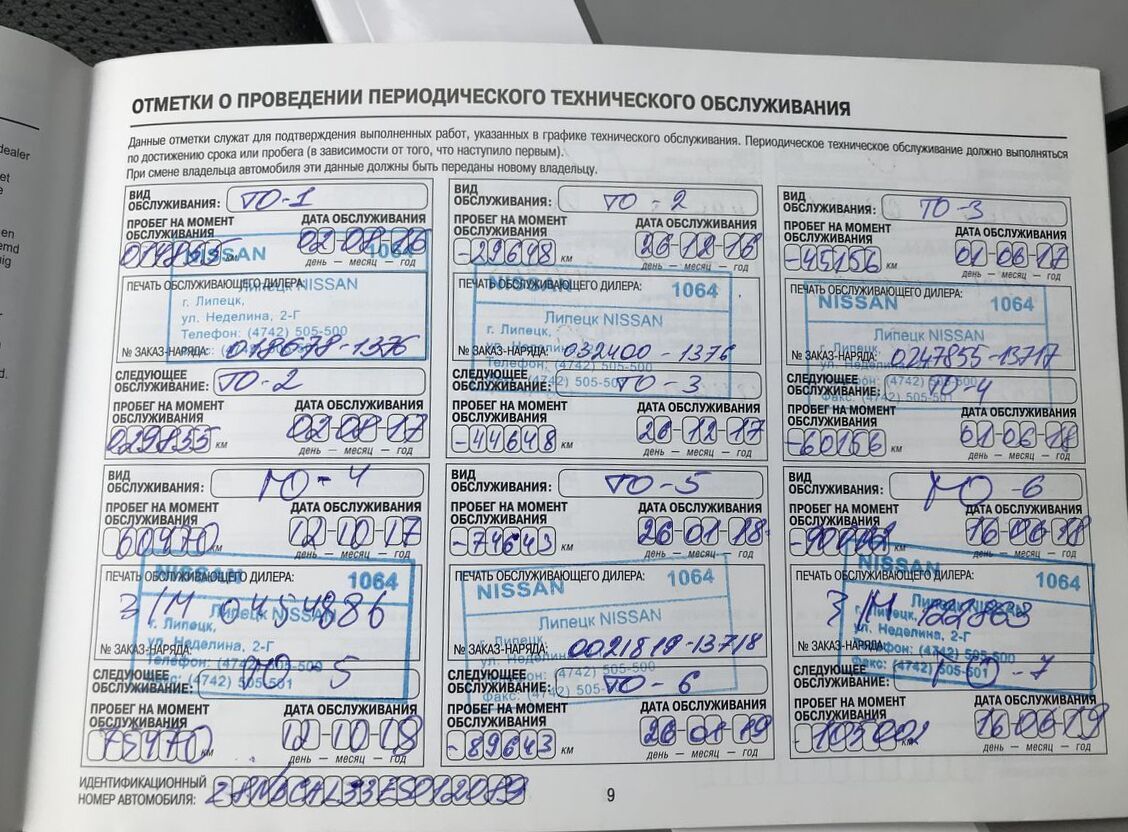 dealer
et
en
emd
nig
d.
ОТМЕТКИ О ПРОВЕДЕНИИ ПЕРИОДИЧЕСКОГО ТЕХНИЧЕСКОГО ОБСЛУЖИВАНИЯ
Данные отметки служат для подтверждения выполненных работ, указанных в графике технического обслуживания. Периодическое техническое обслуживание должно выполняться
по достижению срока или пробега (в зависимости от того, что наступило первым).
При смене владельца автомобиля эти данные должны быть переданы новому владельцу.
ВИД
ОБСЛУЖИВАНИЯ: ТО-1
ПРОБЕГ НА МОМЕНТ ДАТА ОБСЛУЖИВАНИЯ
ОБСЛУЖИВАНИЯ
км 02-08-16
день – месяц – год
NISSAN 1064
ПЕЧАТЬ ОБСЛУЖИВАЮЩЕГО ДИЛЕРА:
Липецк NISSAN
г. Липецк,
ул. Неделина, 2-Г
Телефон: (4742) 505-500
№ ЗАКАЗ-НАРЯДА: 018678-1376
СЛЕДУЮЩЕЕ
ОБСЛУЖИВАНИЕ: ТО-2
ПРОБЕГ НА МОМЕНТ ДАТА ОБСЛУЖИВАНИЯ
ОБСЛУЖИВАНИЯ
029835 км 02-08-17
день – месяц – год
ВИД
ОБСЛУЖИВАНИЯ: ТО-2
ПРОБЕГ НА МОМЕНТ ДАТА ОБСЛУЖИВАНИЯ
ОБСЛУЖИВАНИЯ
-29648 км 26-12-16
день – месяц – год
ПЕЧАТЬ ОБСЛУЖИВАЮЩЕГО ДИЛЕРА:
NISSAN 1064
Липецк NISSAN
г. Липецк,
ул. Неделина
№ ЗАКАЗ-НАРЯДА: 032400-1376
Телефон: (4742) 505-500
СЛЕДУЮЩЕЕ
ОБСЛУЖИВАНИЕ: ТО-3
ПРОБЕГ НА МОМЕНТ ДАТА ОБСЛУЖИВАНИЯ
ОБСЛУЖИВАНИЯ
-44648 км 26-12-17
день – месяц – год
ВИД
ОБСЛУЖИВАНИЯ: ТО-3
ПРОБЕГ НА МОМЕНТ ДАТА ОБСЛУЖИВАНИЯ
ОБСЛУЖИВАНИЯ
-45156 км 01-06-17
день – месяц – год
ПЕЧАТЬ ОБСЛУЖИВАЮЩЕГО ДИЛЕРА:
NISSAN 1064
Липецк NISSAN
г. Липецк,
№ ЗАКАЗ-НАРЯДА: 0247855-13717
СЛЕДУЮЩЕЕ (4742) 505-500
ОБСЛУЖИВАНИЕ: ТО-4
Факс: (4742)
ПРОБЕГ НА МОМЕНТ ДАТА ОБСЛУЖИВАНИЯ
ОБСЛУЖИВАНИЯ
-60156 км 01-06-18
день – месяц – год
ВИД
ОБСЛУЖИВАНИЯ: ТО-4
ПРОБЕГ НА МОМЕНТ ДАТА ОБСЛУЖИВАНИЯ
ОБСЛУЖИВАНИЯ
60470 12-10-17
день – месяц – год
NISSAN 1064
ПЕЧАТЬ ОБСЛУЖИВАЮЩЕГО ДИЛЕРА:
З/Н 0454886
Липецк NISSAN
г. Липецк,
ул. Неделина, 2-Г
№ ЗАКАЗ-НАРЯДА:
Телефон: (4742) 505-500
СЛЕДУЮЩЕЕ
ОБСЛУЖИВАНИЕ: ТО-5
(4742) 505-501
ПРОБЕГ НА МОМЕНТ ДАТА ОБСЛУЖИВАНИЯ
ОБСЛУЖИВАНИЯ
75470 км 12-10-18
день – месяц – год
ВИД
ОБСЛУЖИВАНИЯ: ТО-5
ПРОБЕГ НА МОМЕНТ ДАТА ОБСЛУЖИВАНИЯ
ОБСЛУЖИВАНИЯ
-74643 км 26-01-18
день – месяц – год
ПЕЧАТЬ ОБСЛУЖИВАЮЩЕГО ДИЛЕРА:
NISSAN 1064
Липецк NISSAN
г. Липецк,
№ ЗАКАЗ-НАРЯДА: 0021819-13718
СЛЕДУЮЩЕЕ
ОБСЛУЖИВАНИЕ: ТО-6
Факс: (4742) 505
ПРОБЕГ НА МОМЕНТ ДАТА ОБСЛУЖИВАНИЯ
ОБСЛУЖИВАНИЯ
-89643 км 26-01-19
день – месяц – год
ВИД
ОБСЛУЖИВАНИЯ: ТО-6
ПРОБЕГ НА МОМЕНТ ДАТА ОБСЛУЖИВАНИЯ
ОБСЛУЖИВАНИЯ
км 16-06-18
день – месяц – год
NISSAN
ПЕЧАТЬ ОБСЛУЖИВАЮЩЕГО ДИЛЕРА: 1064
З/Н
г. Липецк, Липецк NISSAN
ул. Неделина, 2-Г
№ ЗАКАЗ-НАРЯДА:
Телефон: (4742) 505-500
СЛЕДУЮЩЕЕ Факс: (4742) 505-501
ОБСЛУЖИВАНИЕ: ТО-7
ПРОБЕГ НА МОМЕНТ ДАТА ОБСЛУЖИВАНИЯ
ОБСЛУЖИВАНИЯ
км 16-06-19
день – месяц – год
ИДЕНТИФИКАЦИОННЫЙ
НОМЕР АВТОМОБИЛЯ:
9